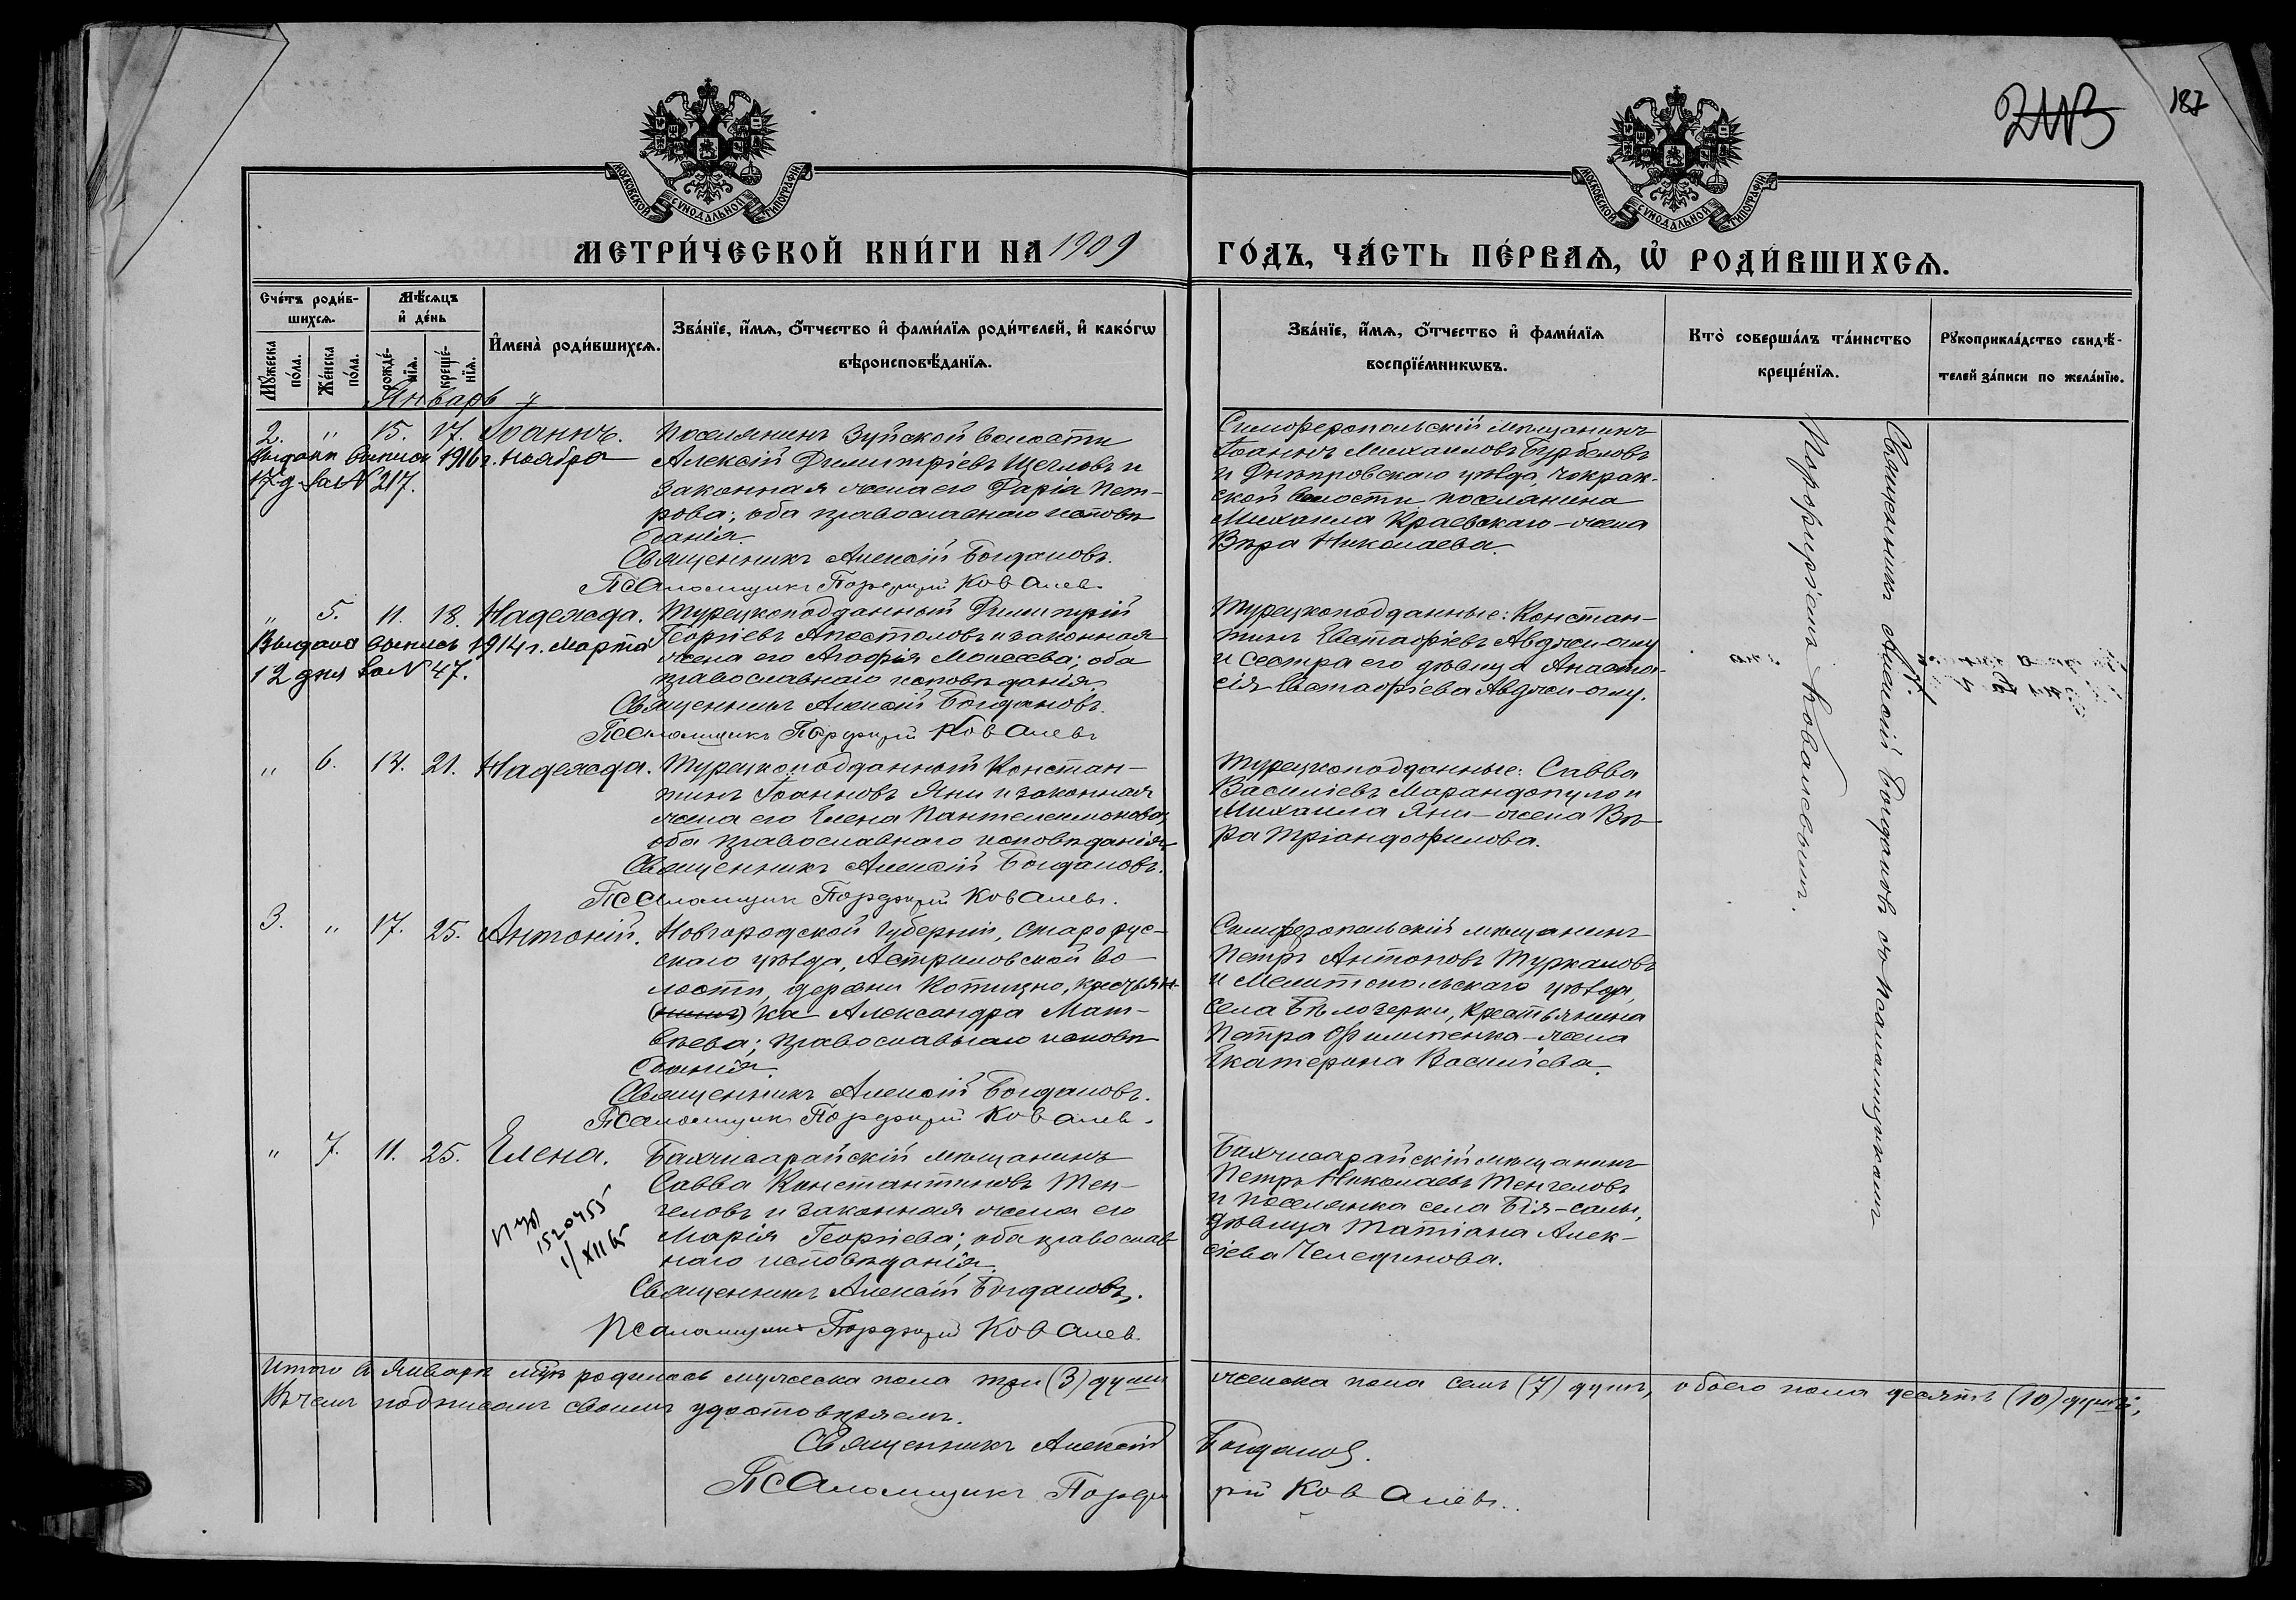 187
МОСКОВСКОЙ СУНОДАЛЬНОЙ ТИПОГРАФІИ
МОСКОВСКОЙ СУНОДАЛЬНОЙ ТИПОГРАФІИ
МЕТРИ́ЧЕСКОЙ КНИ́ГИ НА 1909
ГО́ДЪ, ЧА́СТЬ ПЕ́РВАѦ, Ѡ҆ РОДИ́ВШИХСѦ.
Сче́тъ роди́в-
шихсѧ.
Мꙋ́жеска по́ла.
Же́нска по́ла.
Мѣ́сѧцъ
и҆ де́нь
рожде́-нїѧ.
креще́-нїѧ.
И҆мена̀ роди́вшихсѧ.
Зва́нїе, и҆́мѧ, ѻ҆́тчество и҆ фами́лїѧ роди́телей, и҆ како́гѡ
вѣроисповѣ́данїѧ.
Зва́нїе, и҆́мѧ, ѻ҆́тчество и҆ фами́лїѧ
воспрїе́мникѡвъ.
Кто̀ соверша́лъ та́инство
креще́нїѧ.
Рꙋкоприкла́дство свидѣ́-
телей за́писи по жела́нїю.
Январь
2. " 15. 17. Іоаннъ. Поселянинъ Зуйской волости
Алексій Димитріевъ Щегловъ и
законная жена его Дарія Пет-
рова; оба православнаго исповѣ
данія.
Выдана выпись 1916 г. ноября
17 д. за № 217.
Священникъ Алексій Богдановъ.
Псаломщикъ Порфирій Ковалевъ
Симферопольскій мѣщанинъ
Іоаннъ Михаиловъ Бурбеловъ
и Днѣпровскаго уѣзда, Чокрак-
ской волости поселянина
Михаила Краевскаго – жена
Вѣра Николаева.
" 5. 11. 18. Надежда. Турецкоподданный Димитрій
Георгіевъ Апостоловъ и законная
жена его Агафія Моисеева; оба
православнаго исповѣданія.
Выдана выпись 1914 г. марта
12 дня за № 47.
Священникъ Алексій Богдановъ.
Псаломщикъ Порфирій Ковалевъ
Турецкоподданные: Констан-
тинъ Евстафіевъ Авджи-оглу
и сестра его дѣвица Анаста-
сія Евстафіева Авджи-оглу.
" 6. 14. 21. Надежда. Турецкоподданный Констан-
тинъ Іоанновъ Яни и законная
жена его Елена Пантелеимонова,
оба православнаго исповѣданія
Священникъ Алексій Богдановъ.
Псаломщикъ Порфирій Ковалевъ.
Турецкоподданные: Савва
Василіевъ Марандопуло и
Михаила Яни – жена Вѣ-
ра Тріандофилова.
3. " 17. 25. Антоній. Новгородской губерніи, Старорус-
скаго уѣзда, Астриловской во-
лости, деревни Котицно, крестьян-
ка Александра Мат-
вѣева; православнаго исповѣ
данія.
Священникъ Алексій Богдановъ.
Псаломщикъ Порфирій Ковалевъ.
Симферопольскій мѣщанинъ
Петръ Антоновъ Туркаловъ
и Мелитопольскаго уѣзда,
села Бѣлозерки, крестьянина
Петра Филипенка – жена
Екатерина Васильева.
" 7. 11. 25. Елена. Бахчисарайскій мѣщанинъ
Савва Константиновъ Тен-
геловъ и законная жена его
Марія Георгіева; оба православ
наго исповѣданія.
1520455
Священникъ Алексій Богдановъ.
Псаломщикъ Порфирій Ковалевъ
Бахчисарайскій мѣщанинъ
Петръ Николаевъ Тенгеловъ
и поселянка села Бія-салы,
дѣвица Татіана Алек-
сіева Челединова.
Священникъ Алексій Богдановъ съ псаломщикомъ
Порфиріемъ Ковалевымъ.
Итого въ Январѣ мцѣ родилось мужеска пола три (3) души женска пола семь (7) душъ, обоего пола десять (10) душъ;
Въ чемъ подписомъ своимъ удостовѣряемъ.
Священникъ Алексій Богдановъ.
Псаломщикъ Порфирій Ковалевъ.